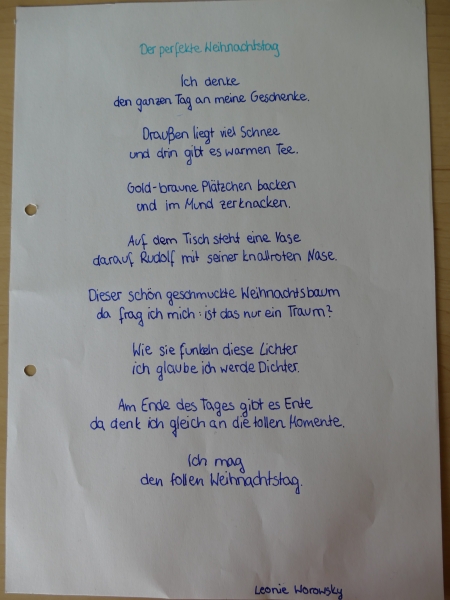 Der perfekte Weihnachtstag
Ich denke
den ganzen Tag an meine Geschenke.
Draußen liegt viel Schnee
und drin gibt es warmen Tee.
Gold-braune Plätzchen backen
und im Mund zerknacken.
Auf dem Tisch steht eine Vase
darauf Rudolf mit seiner knallroten Nase.
Dieser schön geschmuckte Weihnachtsbaum
da frag ich mich: ist das nur ein Traum?
Wie sie funkeln diese Lichter
ich glaube ich werde Dichter.
Am Ende des Tages gibt es Ente
da denk ich gleich an die tollen Momente.
Ich mag
den tollen Weihnachtstag.
Leonie Worowsky